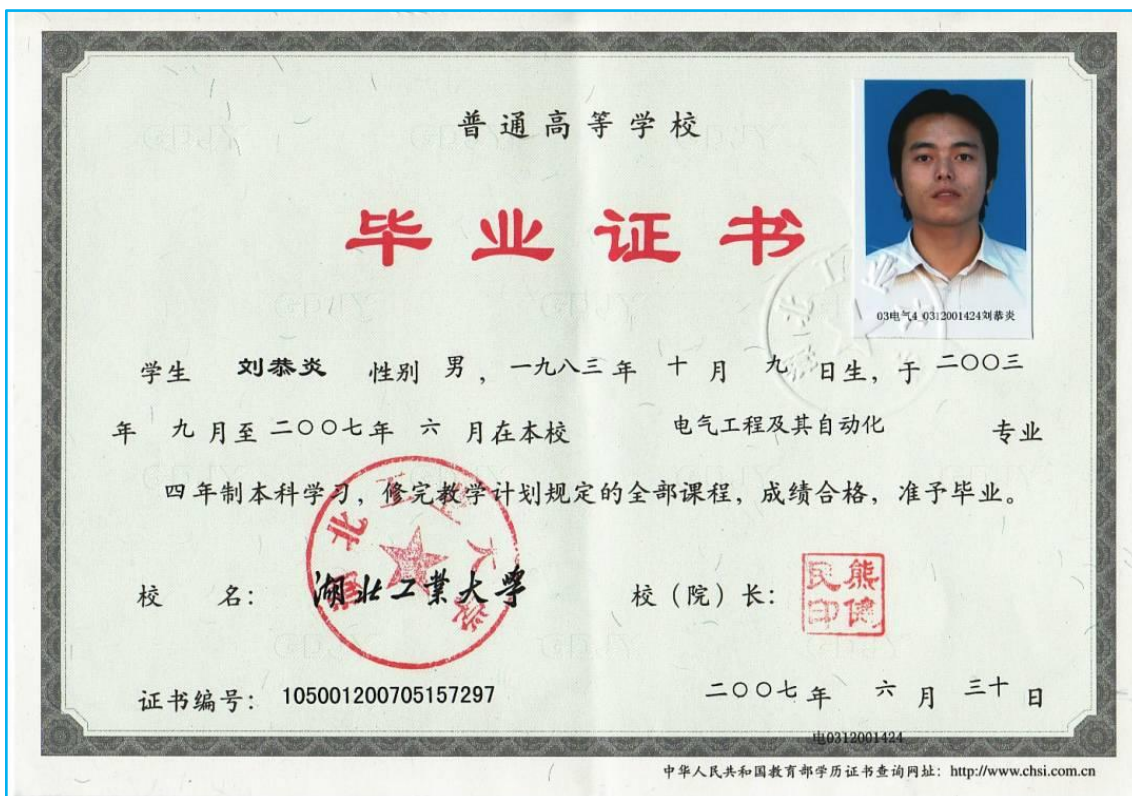 普通高等学校
毕业证书
03电气4_0312001424刘恭炎
学生 刘恭炎 性别 男，一九八三年 十月 九日生，于 二〇〇三
年 九月至 二〇〇七年 六月在本校 电气工程及其自动化 专业
四年制本科学习，修完教学计划规定的全部课程，成绩合格，准予毕业。
湖北工业大学
校 名： 湖北工業大学 校（院）长： 熊健民印
证书编号： 105001200705157297 二〇〇七年 六月 三十日
电0312001424
中华人民共和国教育部学历证书查询网址：http://www.chsi.com.cn